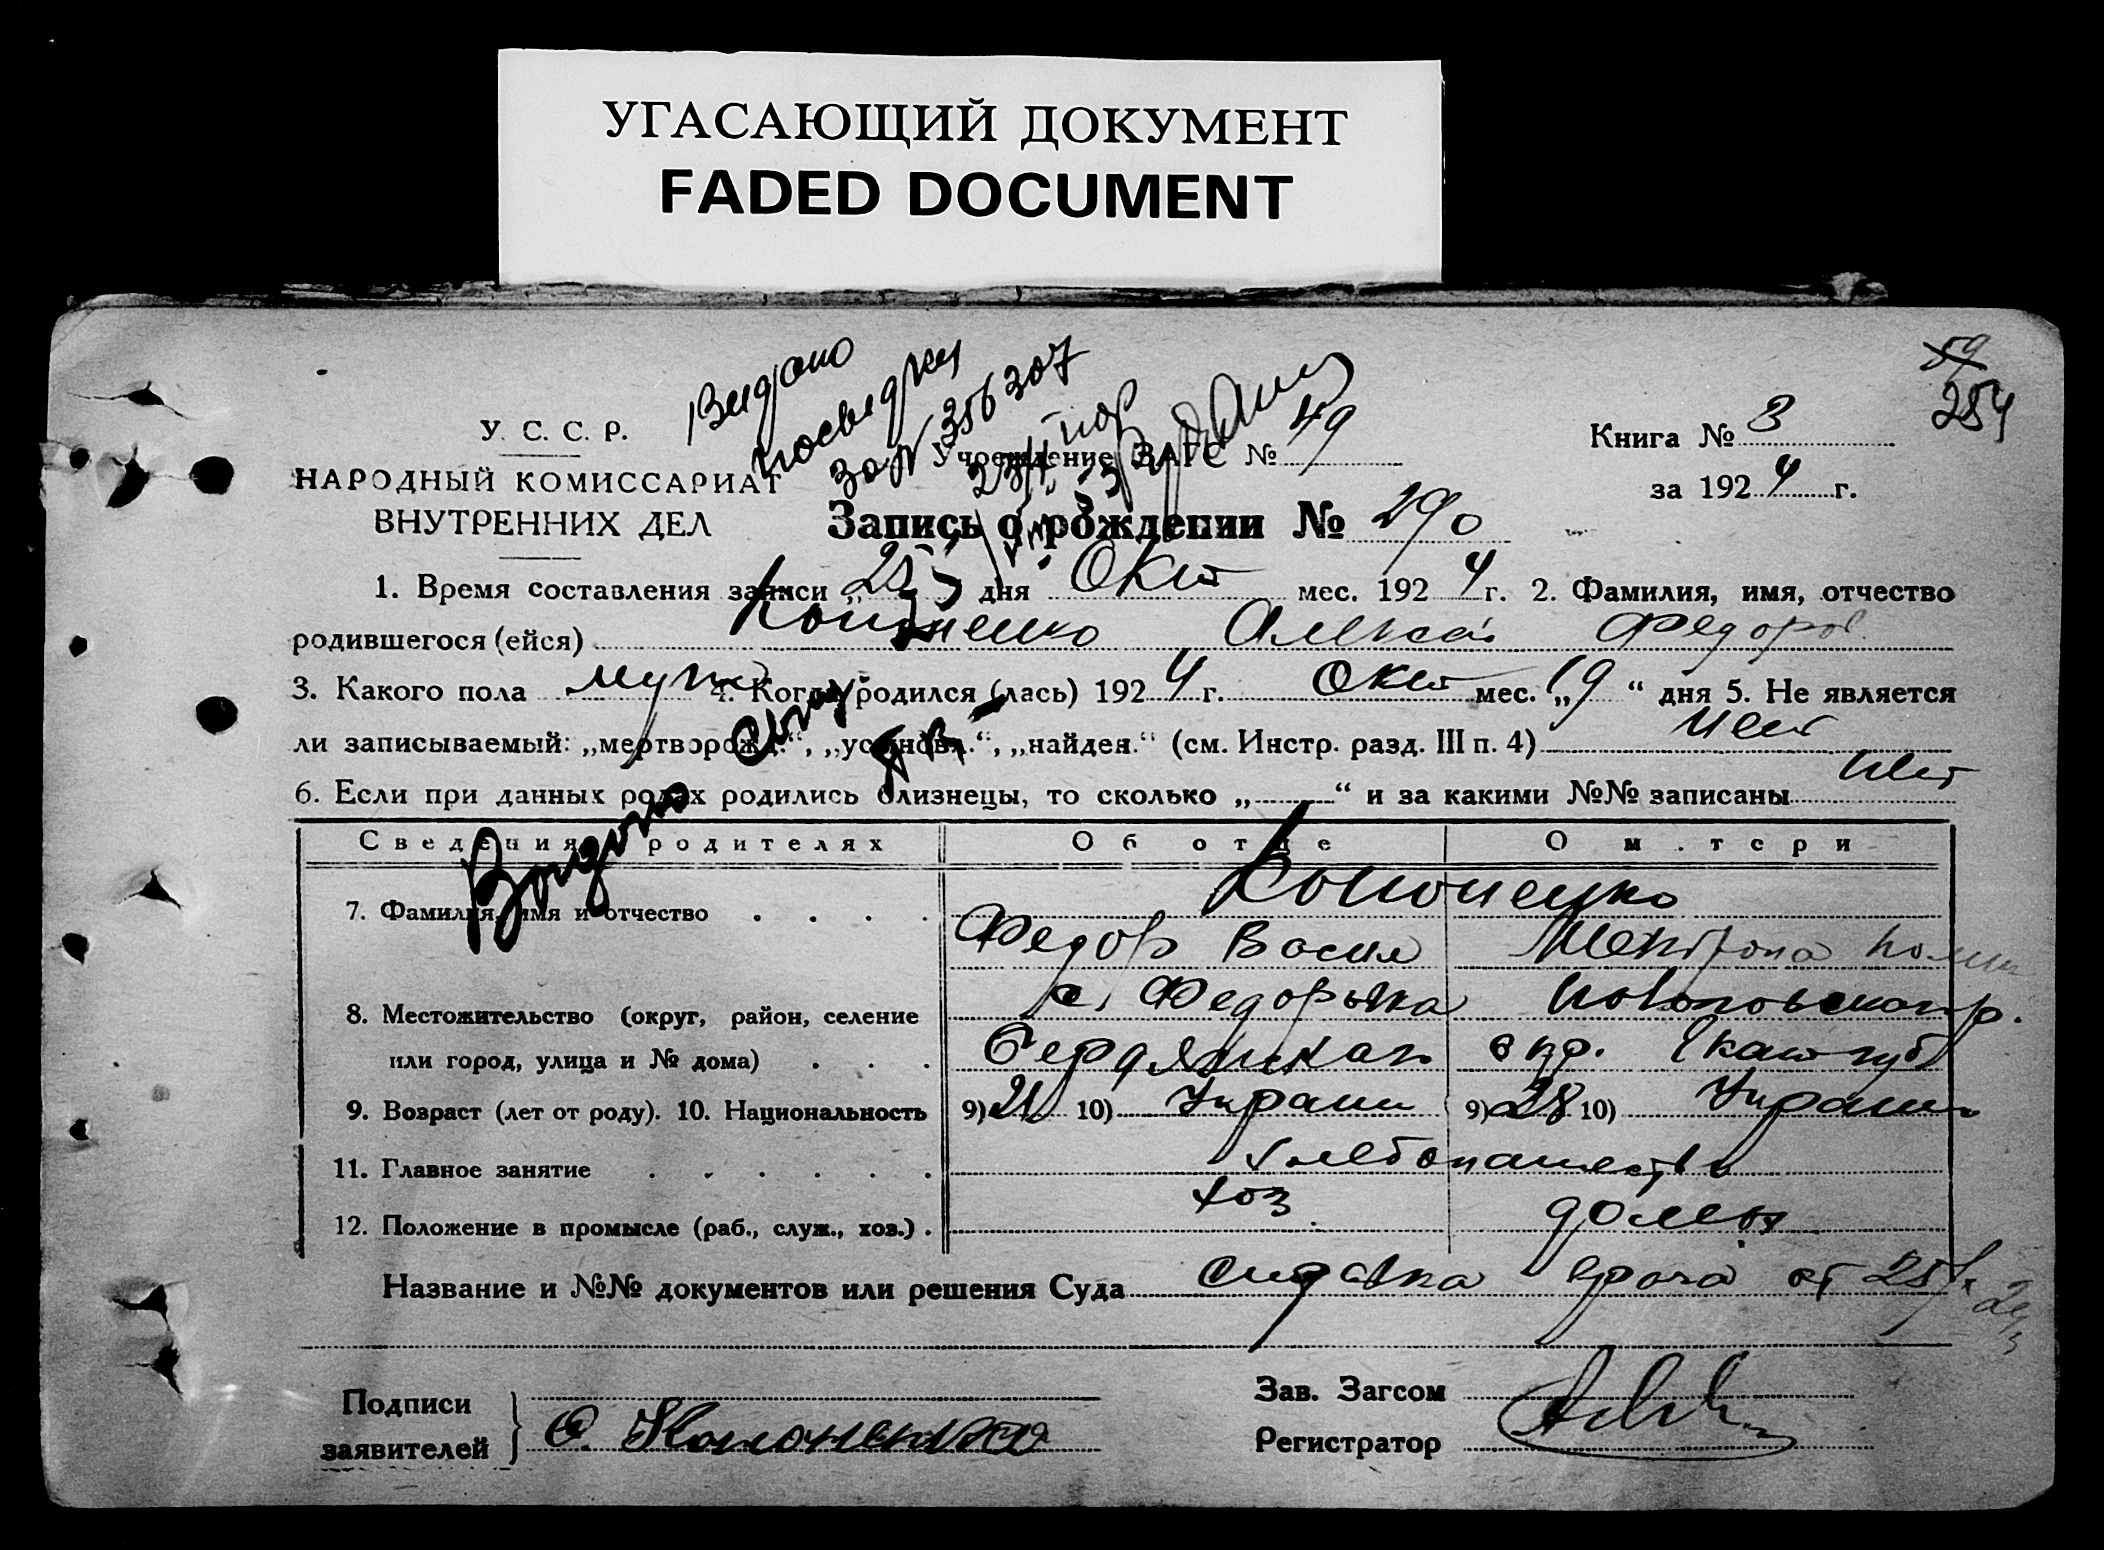 УГАСАЮЩИЙ ДОКУМЕНТ
FADED DOCUMENT
59
254
Видано
посвідку
за № 356307
У. С. С. Р.
Учреждение ЗАГС № 49
Книга № 3
НАРОДНЫЙ КОМИССАРИАТ
за 1924 г.
ВНУТРЕННИХ ДЕЛ
Запись о рождении № 290
1. Время составления записи „25“ дня Окт мес. 1924 г. 2. Фамилия, имя, отчество
родившегося (ейся) Кононенко Алексей Федоров
3. Какого пола муж 4. Когда родился (лась) 1924 г. Окт мес. „19“ дня 5. Не является
ли записываемый: „мертворожд.“, „установл.“, „найден.“ (см. Инстр. разд. III п. 4) нет
6. Если при данных родах родились близнецы, то сколько „ “ и за какими №№ записаны нет
Сведения о родителях Об отце О матери
7. Фамилия, имя и отчество . . . . Кононенко
Федор Васил
8. Местожительство (округ, район, селение с. Федоровка
или город, улица и № дома) . . . Бердянская окр. Екат губ
9. Возраст (лет от роду). 10. Национальность 9) 21 10) Украин 9) 28 10) Украин
11. Главное занятие . . . . . . хлебопашество
12. Положение в промысле (раб., служ., хоз.) . хоз домох
Название и №№ документов или решения Суда справка врача от 25/X 24
Подписи
заявителей
Ф. Кононенко
Зав. Загсом
Регистратор